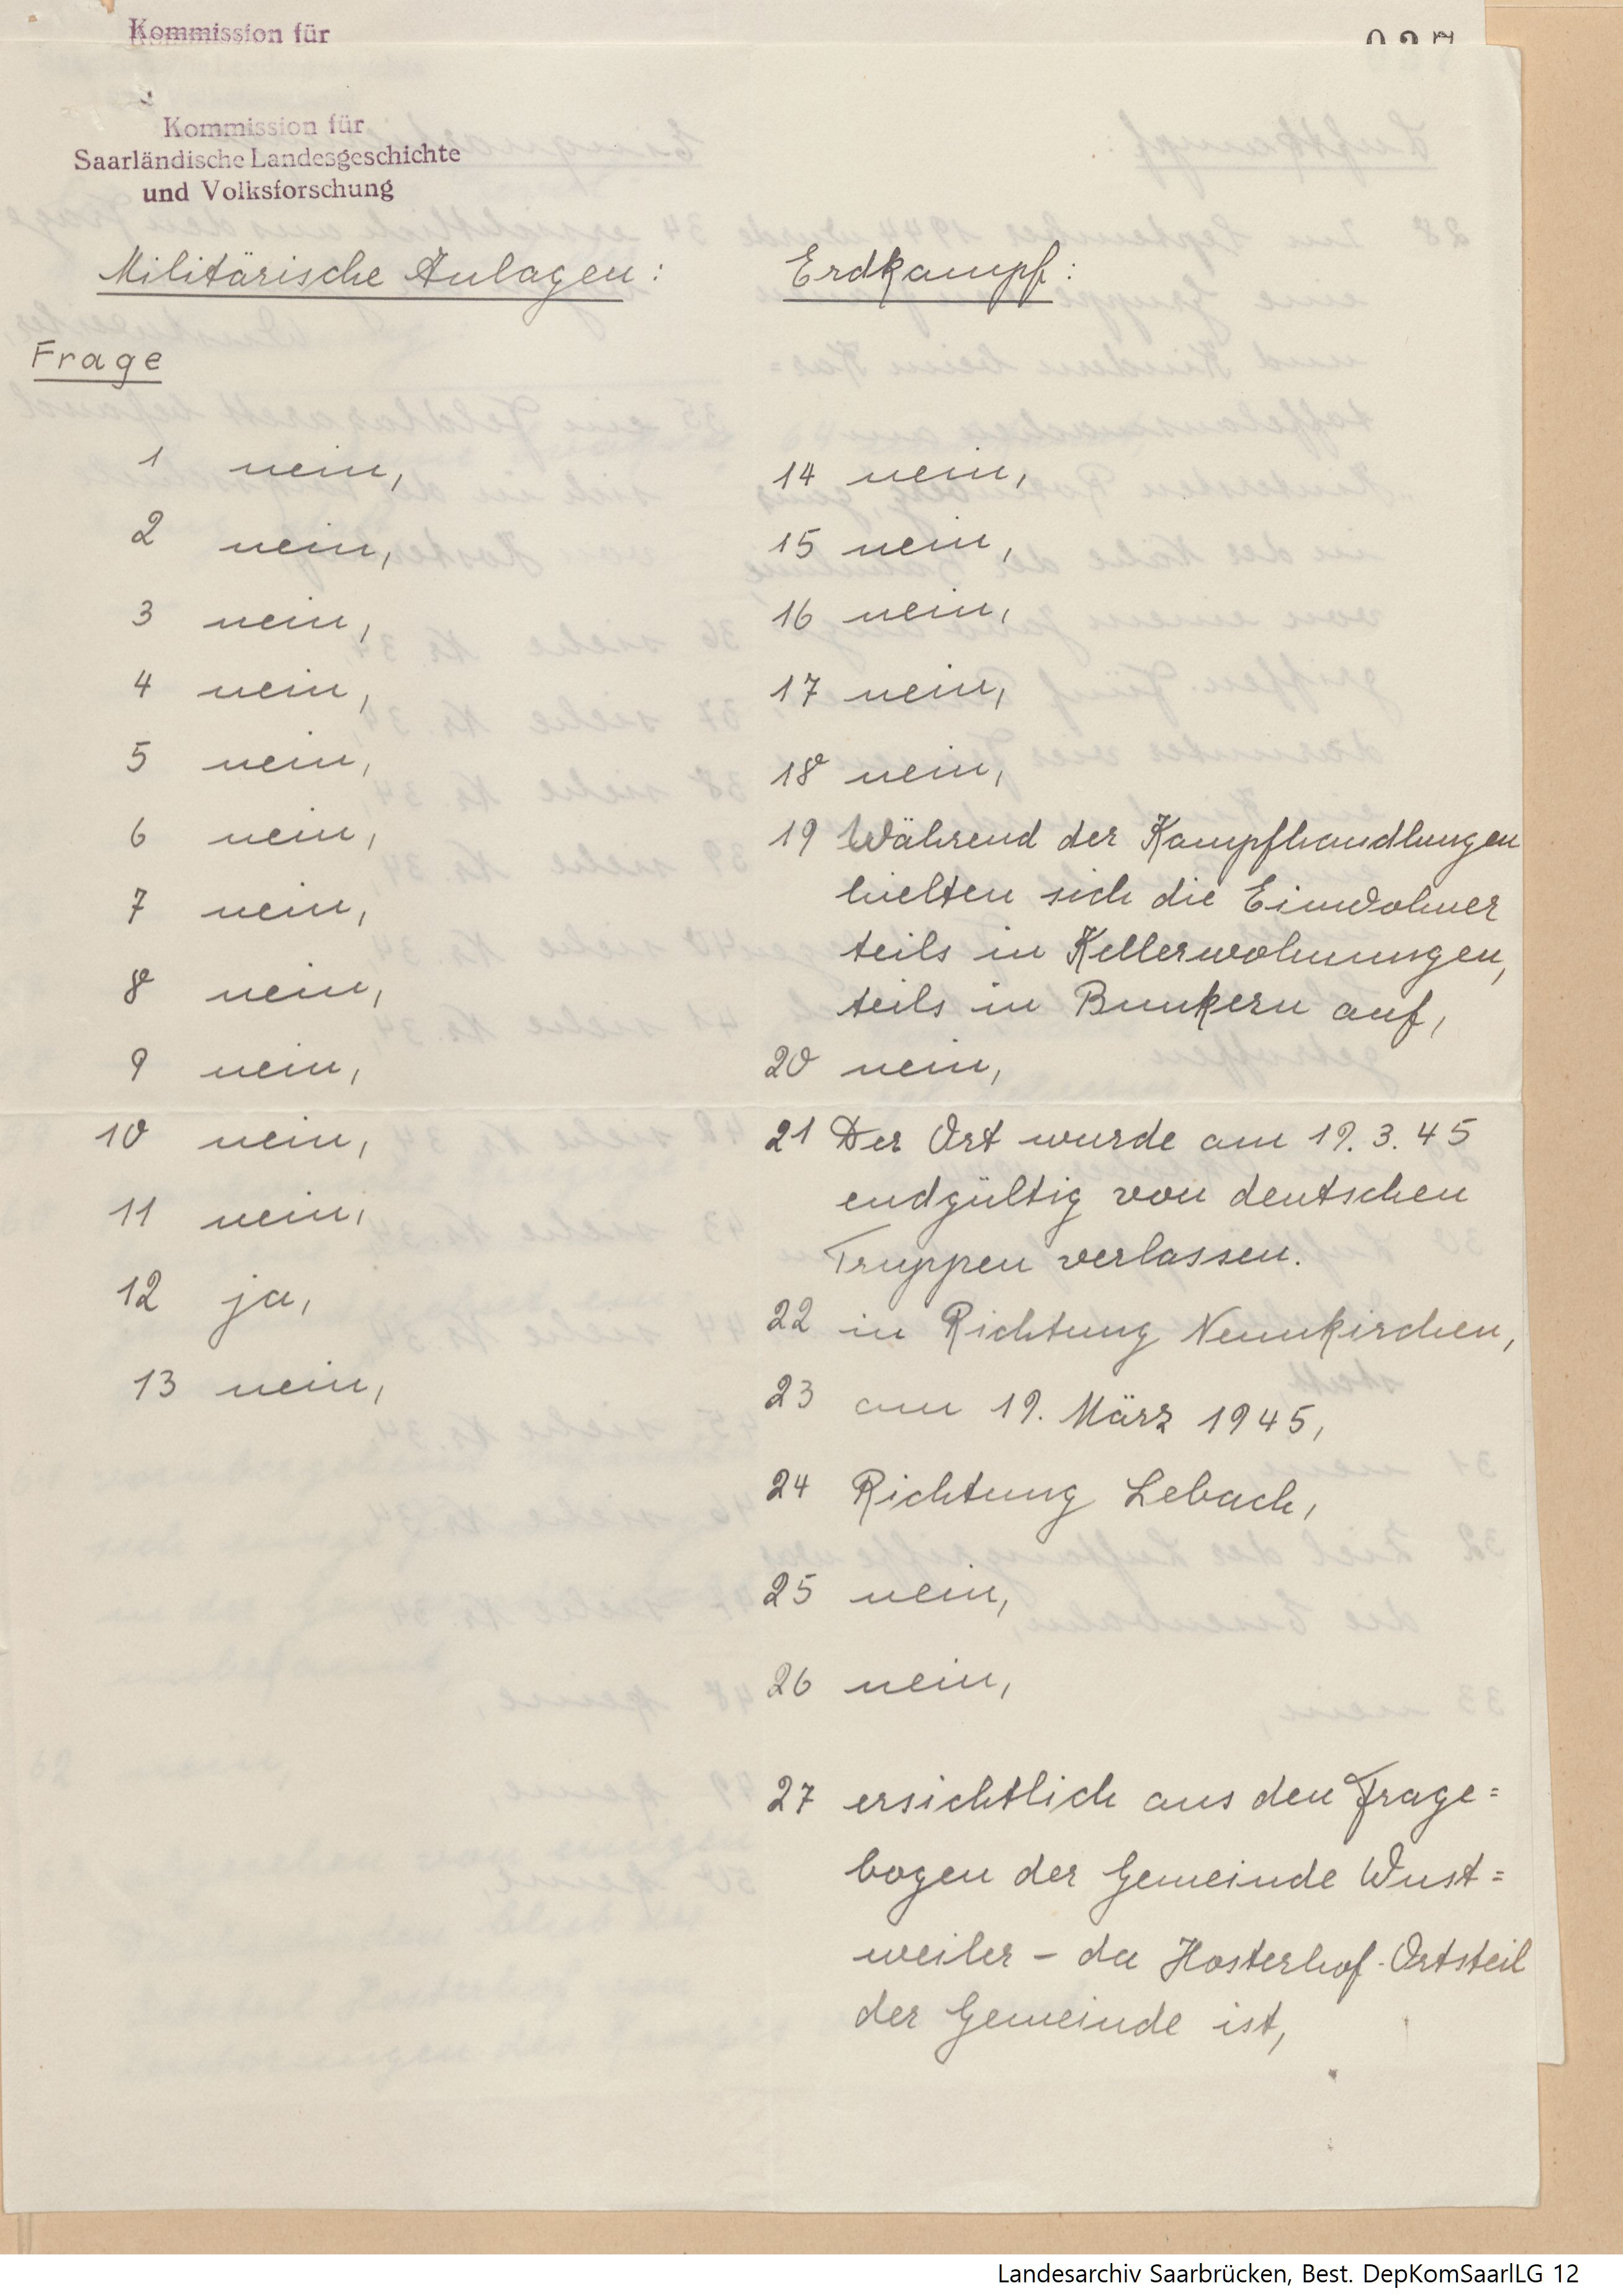 Kommission für
Kommission für
Saarländische Landesgeschichte
und Volksforschung
Militärische Anlagen:
Frage
1 nein,
2 nein,
3 nein,
4 nein,
5 nein,
6 nein,
7 nein,
8 nein,
9 nein,
10 nein,
11 nein,
12 ja,
13 nein,
Erdkampf:
14 nein,
15 nein,
16 nein,
17 nein,
18 nein,
19 Während der Kampfhandlungen
hielten sich die Einwohner
teils in Kellerwohnungen,
teils in Bunkern auf,
20 nein,
21 Der Ort wurde am 19.3.45
endgültig von deutschen
Truppen verlassen.
22 in Richtung Neunkirchen,
23 am 19. März 1945,
24 Richtung Lebach,
25 nein,
26 nein,
27 ersichtlich aus den Frage=
bogen der Gemeinde Wust=
weiler - da Hosterhof-Ortsteil
der Gemeinde ist,
Landesarchiv Saarbrücken, Best. DepKomSaarlLG 12